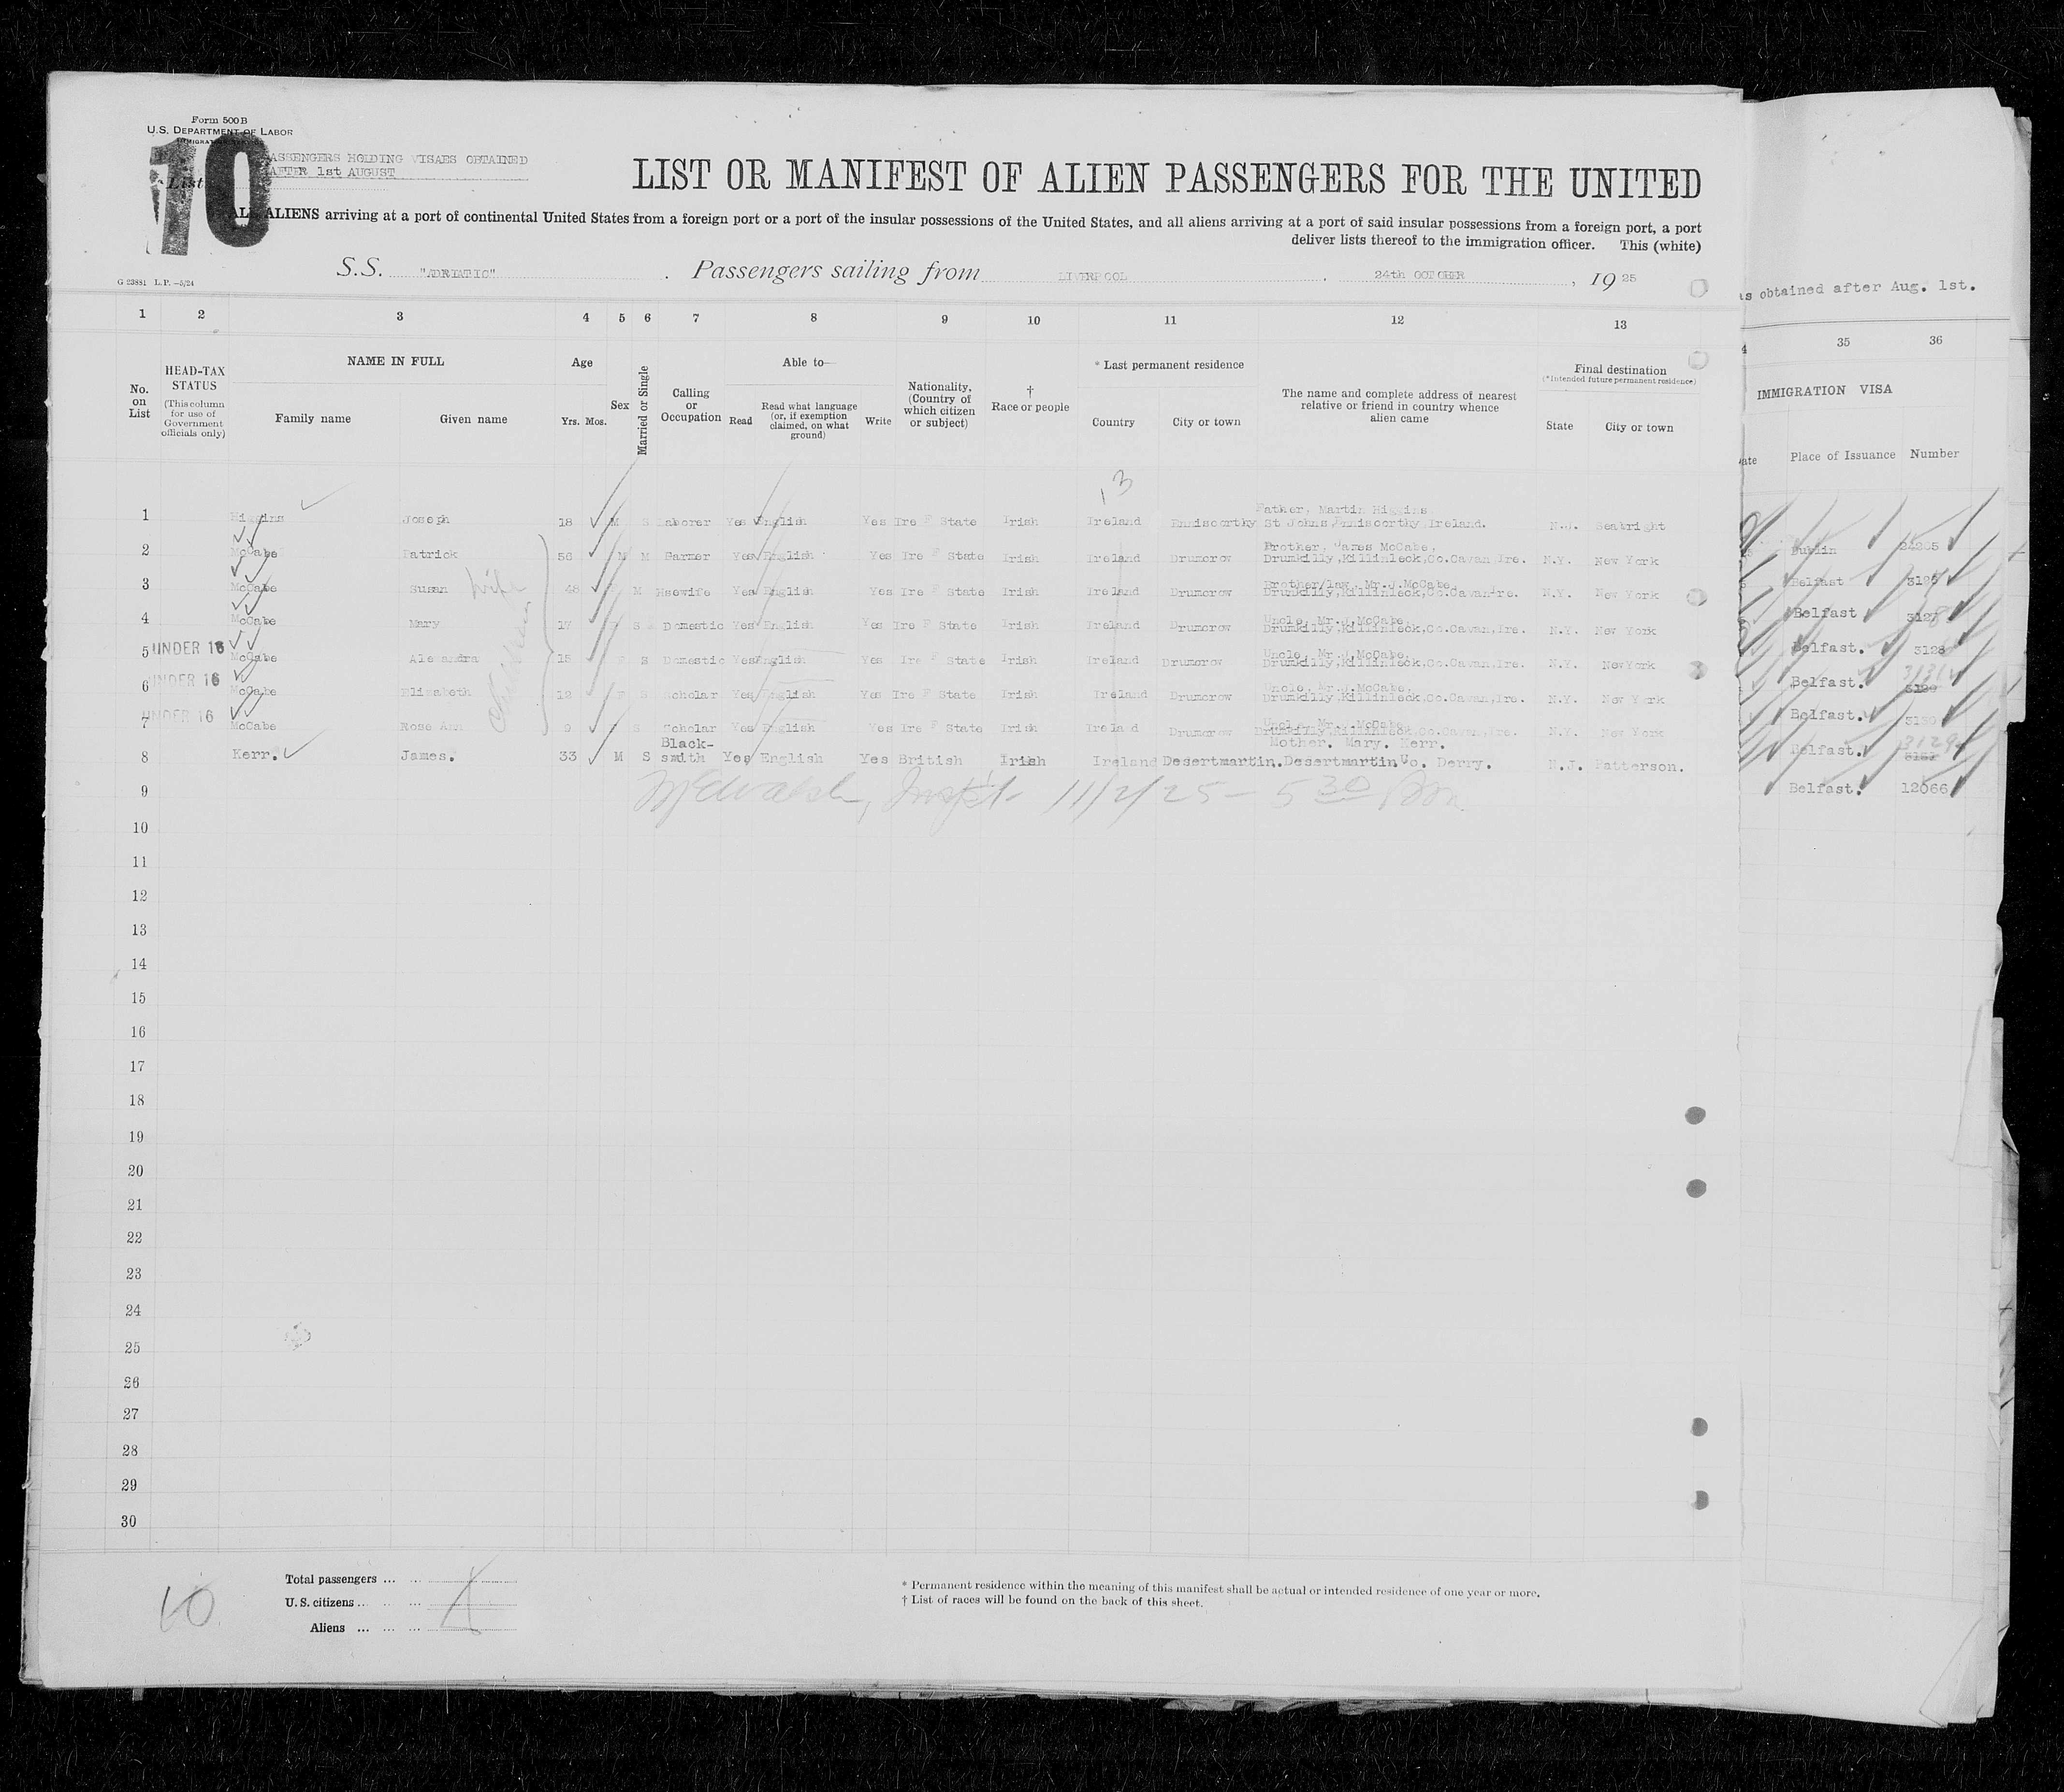 Form 500B
U.S. DEPARTMENT OF LABOR
10
PASSENGERS HOLDING VISAES OBTAINED
AFTER 1st AUGUST
List
LIST OR MANIFEST OF ALIEN PASSENGERS FOR THE UNITED
ALL ALIENS arriving at a port of continental United States from a foreign port or a port of the insular possessions of the United States, and all aliens arriving at a port of said insular possessions from a foreign port, a port
deliver lists thereof to the immigration officer. This (white)
S.S. "ADRIATIC" . Passengers sailing from LIVERPOOL , 24th OCTOBER , 19 25
G 23881 L.P.—5/24
as obtained after Aug. 1st.
1 2 3 4 5 6 7 8 9 10 11 12 13
35 36
No. on List
HEAD-TAX STATUS
(This column for use of Government officials only)
NAME IN FULL
Family name Given name
Age
Yrs. Mos.
Sex
Married or Single
Calling or Occupation
Able to—
Read
Read what language (or, if exemption claimed, on what ground)
Write
Nationality, (Country of which citizen or subject)
† Race or people
* Last permanent residence
Country City or town
The name and complete address of nearest relative or friend in country whence alien came
Final destination
(*Intended future permanent residence)
State City or town
IMMIGRATION VISA
Place of Issuance Number
13
Father, Martin Higgins
1 Higgins Joseph 18 M S Laborer Yes English Yes Ire F State Irish Ireland Enniscorthy St Johns, Enniscorthy, Ireland. N.J. Seabright
Dublin
Brother, James McCabe,
2 McCabe Patrick 56 M M Farmer Yes English Yes Ire F State Irish Ireland Drumcrow Drumkilly, Killinleck, Co.Cavan, Ire. N.Y. New York
Belfast
Brother/law, Mr.J.McCabe,
3 McCabe Susan Wife 48 F M Hsewife Yes English Yes Ire F State Irish Ireland Drumcrow Drumkilly, Killinleck, Co.Cavan Ire. N.Y. New York
Belfast
Uncle, Mr.J.McCabe,
4 McCabe Mary 17 F S Domestic Yes English Yes Ire F State Irish Ireland Drumcrow Drumkilly, Killinleck, Co.Cavan, Ire. N.Y. New York
Belfast. 3128
Uncle, Mr.J.McCabe,
5 UNDER 16 McCabe Alexandra 15 F S Domestic Yes English Yes Ire F State Irish Ireland Drumcrow Drumkilly, Killinleck, Co.Cavan, Ire. N.Y. NewYork
Belfast. 3131
Uncle, Mr.J.McCabe,
6 UNDER 16 McCabe Elizabeth 12 F S Scholar Yes English Yes Ire F State Irish Ireland Drumcrow Drumkilly, Killinleck, Co.Cavan, Ire. N.Y. New York
Belfast. 3130
Uncle, Mr.J.McCabe,
7 UNDER 16 McCabe Rose Ann 9 F S Scholar Yes English Yes Ire F State Irish Ireland Drumcrow Drumkilly, Killinleck, Co.Cavan, Ire. N.Y. New York
Belfast. 3129
Children
Mother. Mary. Kerr.
8 Kerr. James. 33 M S Black-smith Yes English Yes British Irish Ireland Desertmartin. Desertmartin Co. Derry. N.J. Patterson.
Belfast. 12066
11/2/25 - 5 30 Pm
9
10
11
12
13
14
15
16
17
18
19
20
21
22
23
24
25
26
27
28
29
30
10
Total passengers ... ...
U.S. citizens ... ... ...
Aliens ... ... ...
* Permanent residence within the meaning of this manifest shall be actual or intended residence of one year or more.
† List of races will be found on the back of this sheet.